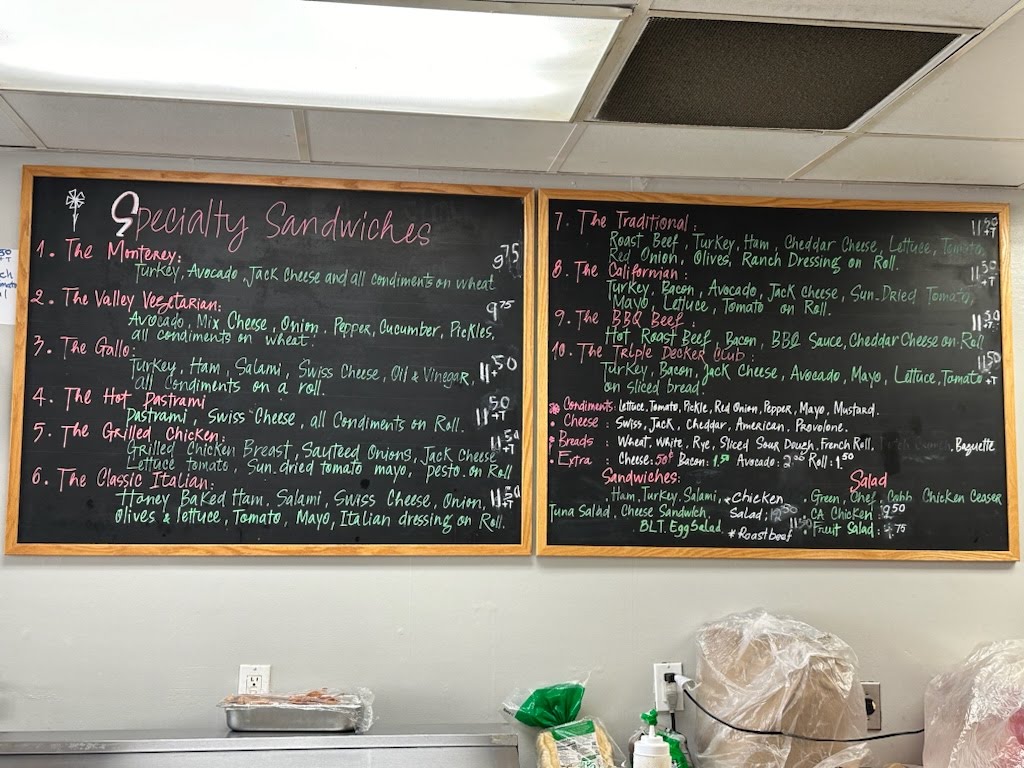 Specialty Sandwiches
1. The Monterey: 9.75
Turkey, Avocado, Jack cheese and all condiments on wheat
2. The Valley Vegetarian: 9.75
Avocado, Mix Cheese, Onion, Pepper, Cucumber, Pickles,
all condiments on wheat.
3. The Gallo:
Turkey, Ham, Salami, Swiss Cheese, Oil & Vinegar, 11.50
all Condiments on a roll.
4. The Hot Pastrami 11.50+T
Pastrami, Swiss Cheese, all Condiments on Roll.
5. The Grilled Chicken: 11.50+T
Grilled Chicken Breast, Sauteed Onions, Jack Cheese
Lettuce tomato, Sun-dried tomato mayo, pesto on Roll
6. The Classic Italian: 11.50+T
Honey Baked Ham, Salami, Swiss Cheese, Onion,
Olives & lettuce, Tomato, Mayo, Italian dressing on Roll.
7. The Traditional: 11.50+T
Roast Beef, Turkey, Ham, Cheddar Cheese, Lettuce, Tomato,
Red Onion, Olives, Ranch Dressing on Roll.
8. The Californian: 11.50+T
Turkey, Bacon, Avocado, Jack cheese, Sun-Dried Tomato,
Mayo, Lettuce, Tomato on Roll.
9. The BBQ Beef: 11.50+T
Hot Roast Beef, Bacon, BBQ Sauce, Cheddar Cheese on Roll
10. The Triple Decker Club: 11.50+T
Turkey, Bacon, Jack Cheese, Avocado, Mayo, Lettuce, Tomato
on Sliced bread
Condiments: Lettuce, Tomato, Pickle, Red Onion, Pepper, Mayo, Mustard.
Cheese: Swiss, Jack, Cheddar, American, Provolone.
Breads: Wheat, White, Rye, Sliced Sour Dough, French Roll, Baguette
Extra: Cheese: 50¢ Bacon: 1.50 Avocado: 2.00 Roll: 1.50
Sandwiches:
Ham, Turkey, Salami,
Tuna Salad, Cheese Sandwich,
BLT. Egg Salad
*Chicken
Salad:
*Roast beef 11.50
Salad
Green, Chef, Cobb Chicken Ceaser
CA Chicken: 9.50
Fruit Salad: 75